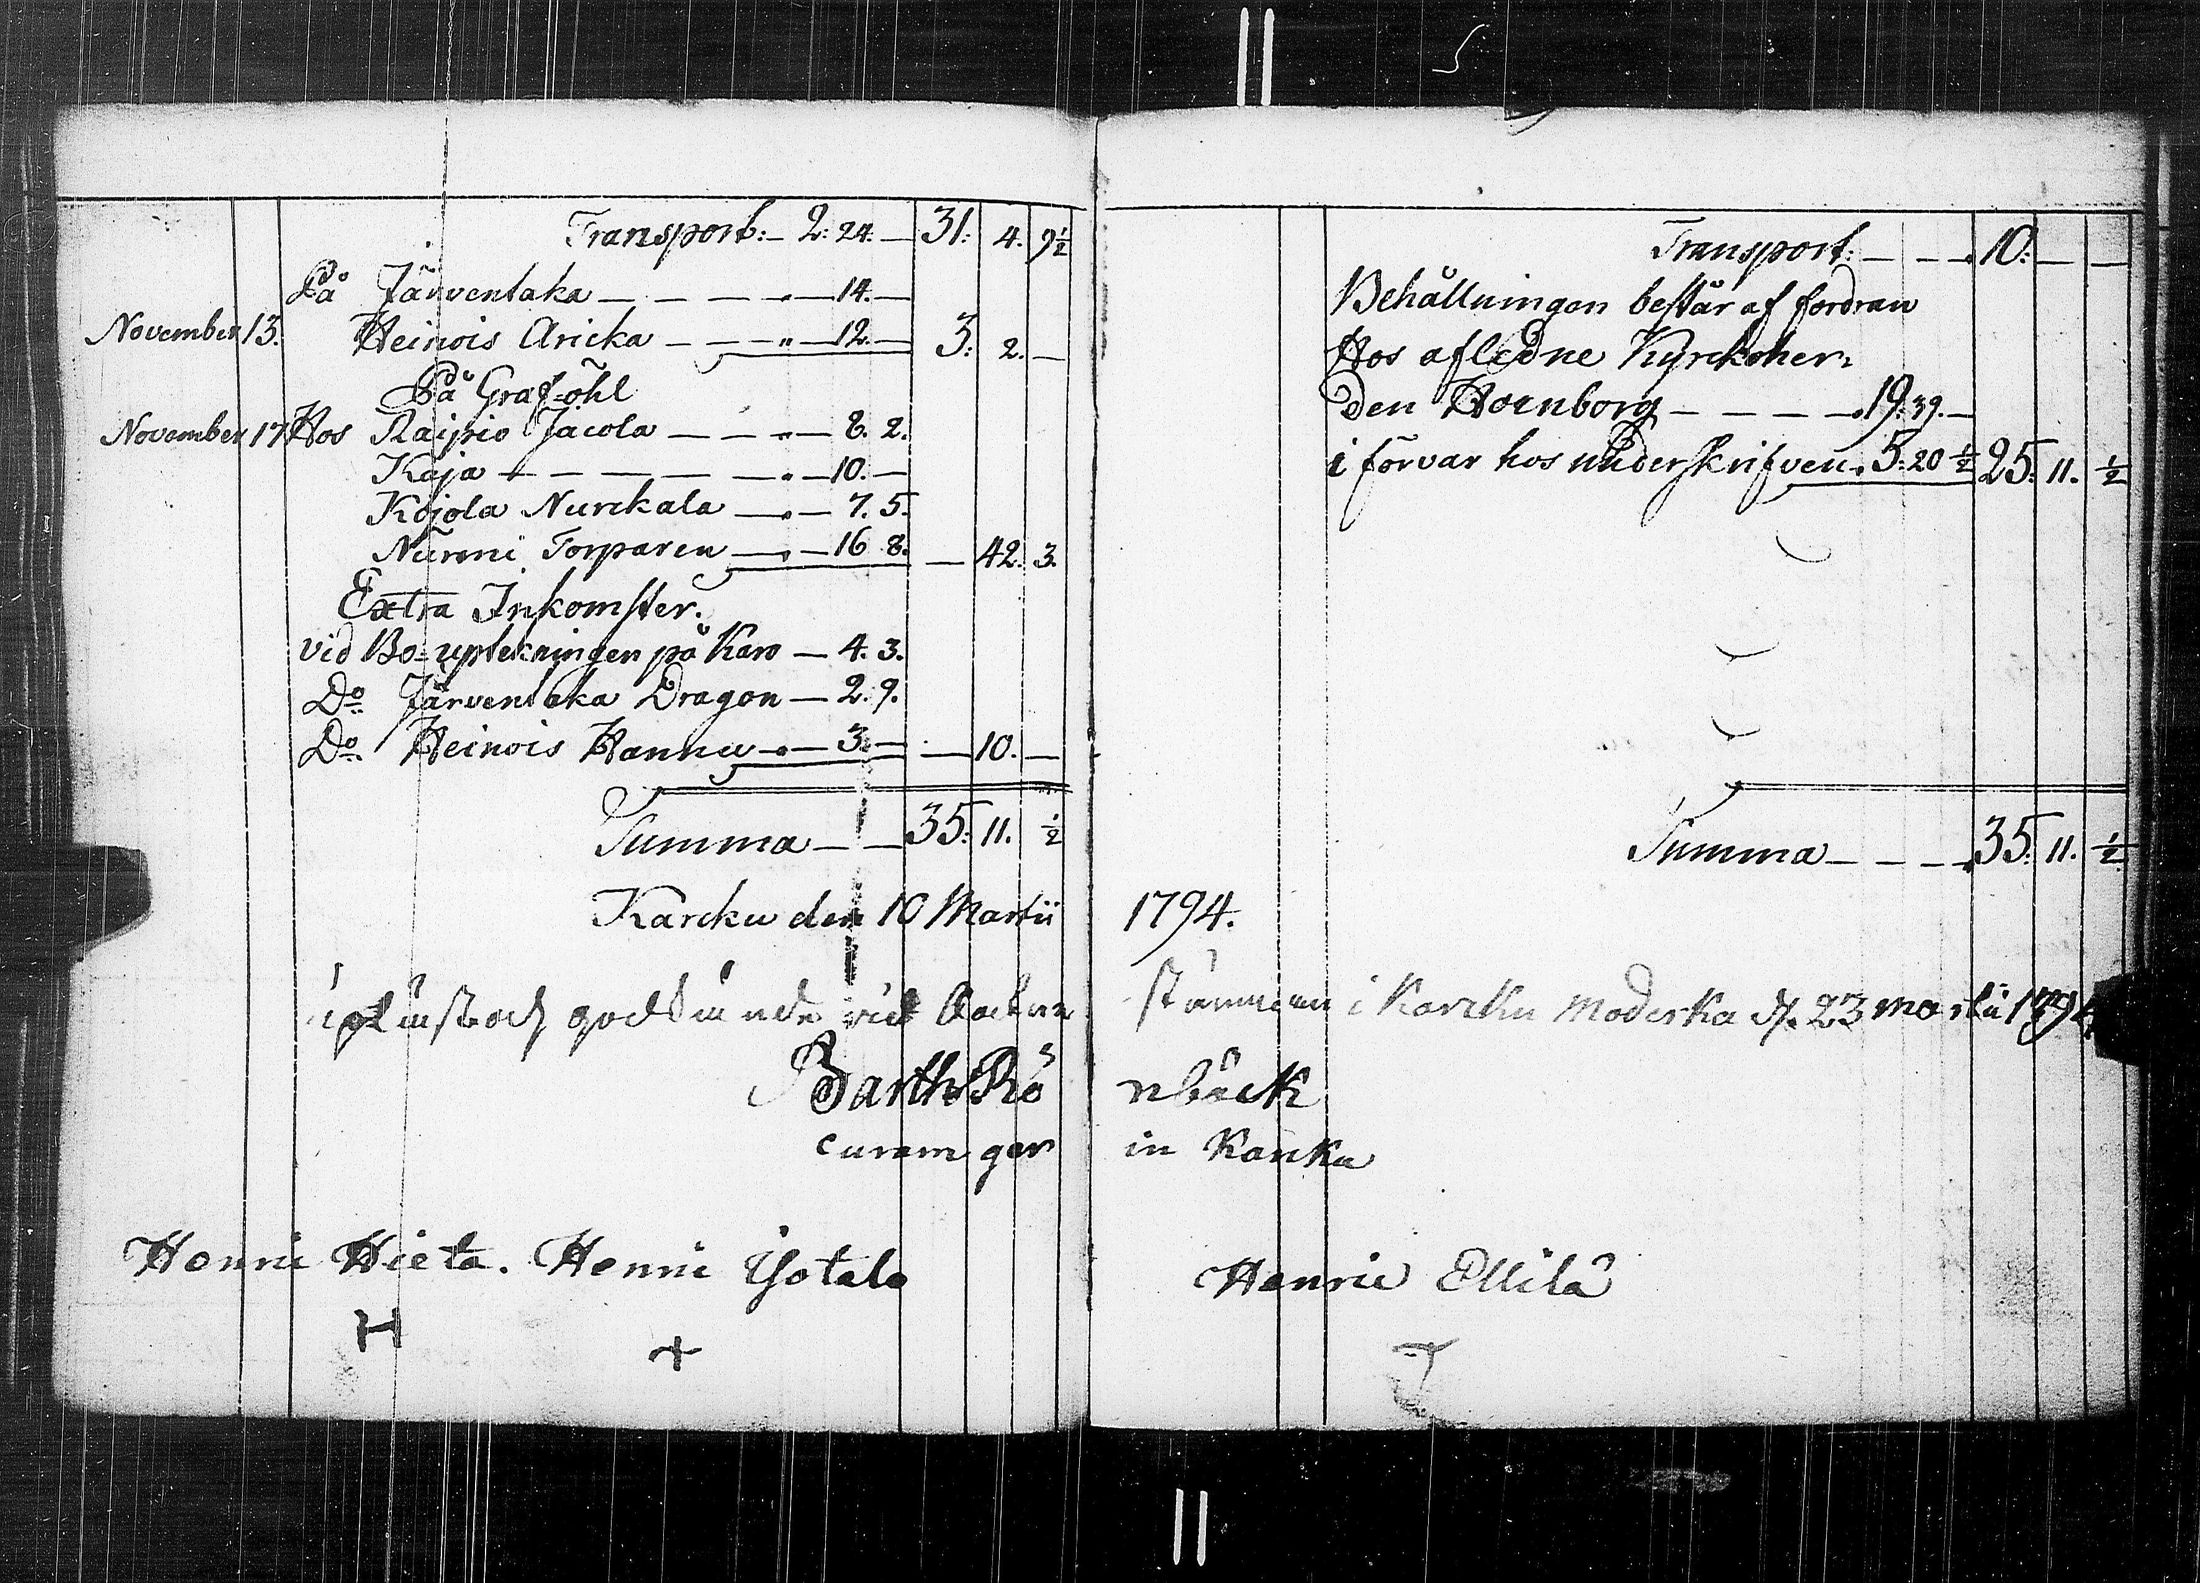 Transport:– 2: 24.– 31: 4. 9½
På Järventaka – – – – „ – 14. –
November 13. Heinois Aricka – – – „ – 12. – 3: 2. –
På Graf-öhl
November 17 Hos Raipio Jacola – – – „ – 8. 2.
Kaja – – – – – – „ – 10. –
Kojola Nurckala – „ – 7. 5.
Nurmi Torparen – „ – 16 8. – 42. 3.
Extra Inkomster.
vid Bo-upteckningen på Karo – 4. 3.
Do Järventaka Dragon – 2. 9.
Do Heinois Hannu „ – 3. – – 10. –
Summa – – 35: 11. ½
Karcku den 10 Martii 1794.
godkände vid Sockne stämman i Karcku Moderka d. 23 martii 1794
Barth Rönbäck
curam ger in Karcku
Henric Hieta. Henric Yotala
H
+
Transport: – – – 10: – –
Behållningen består af fordran
Hos aflidne Kyrckoher-
den Hornborg – – – – 19: 39. –
i förvar hos underskrifven. 5: 20½ 25: 11. ½
Summa – – – 35: 11. ½
Henric Ellilä